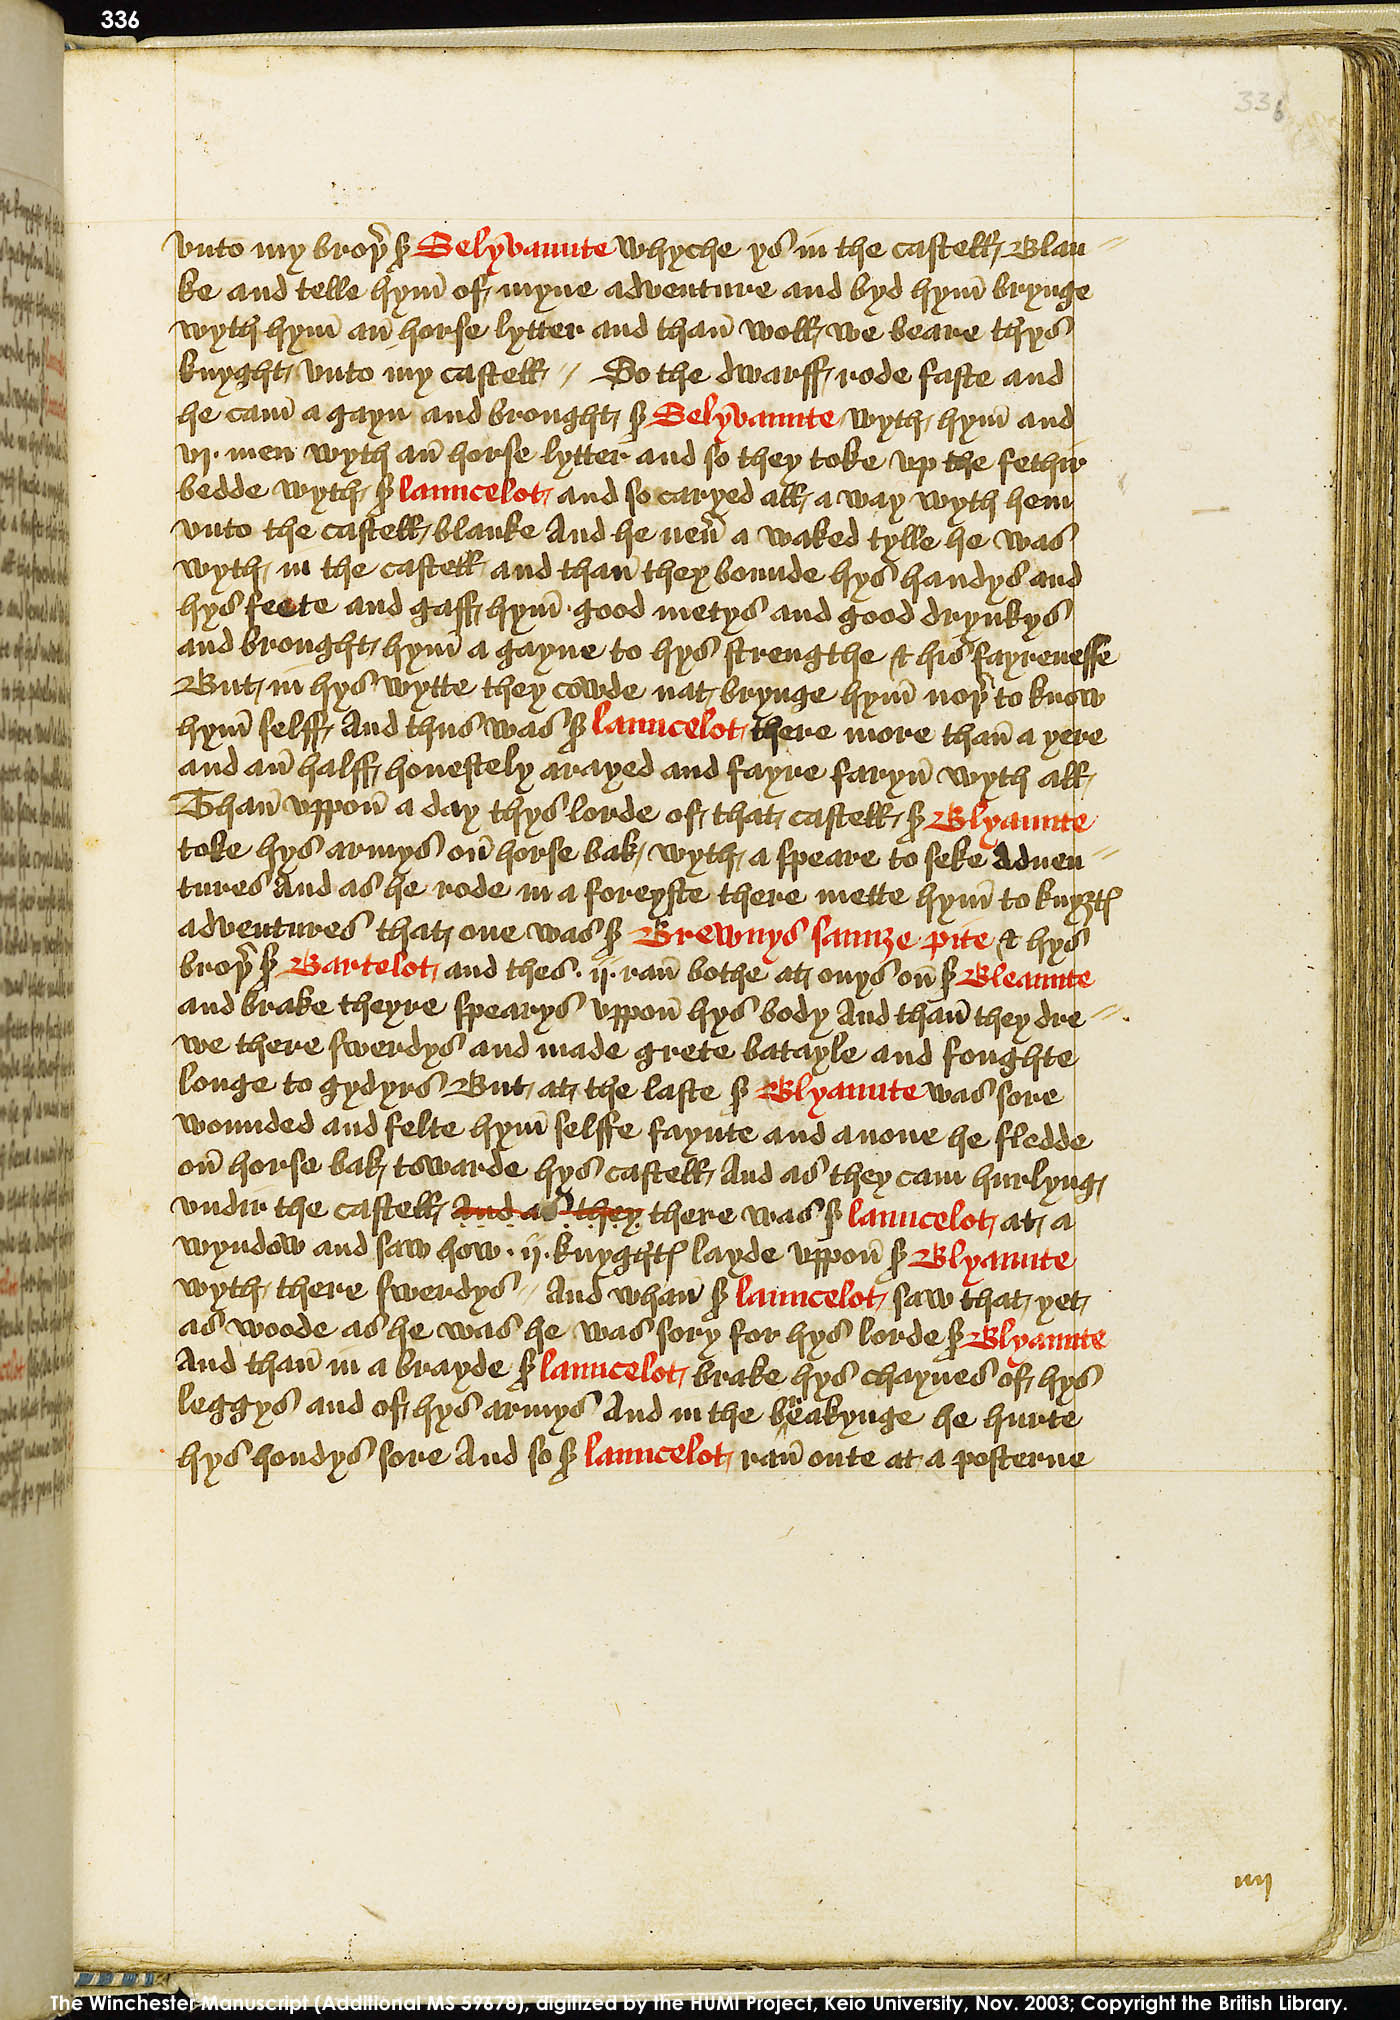 336
336
vnto my broþ̉ Ꝭ Selyvaunte whyche ys in the castell Blan〃
ke and telle hym̄ of myne adventure and byd hym̄ brynge
wyth hym̄ an̄ horse lytter and than̄ woll we beare thys
knyght vnto my castell 〃 So the dwarff rode faste and
he cam̄ a gayn and brought Ꝭ Selyvaunte wyth hym̄ and
vj · men wyth an̄ horse lytter and so they toke vp the fethir
bedde wyth Ꝭ launcelot and so caryed all a way wyth hem
vnto the castell blanke And he neủ a waked tylle he was
wyth in the castell and than̄ they bounde hys handys and
hys feete and gaff hym̄ good metys and good drynkys
and brought hym̄ a gayne to hys strengthe & his fayrenesse
But in hys wytte they cowde nat brynge hym̄ noþ̉ to know
hym̄ selff And thus was Ꝭ launcelot there more than̄ a yere
and an̄ halff honestely arayed and fayre faryn̄ wyth all
Than̄ vppon̄ a day thys lorde of that castell Ꝭ Blyaunte
toke hys armys on̄ horse bak wyth a speare to seke adven〃
tures And as he rode in a foreyste there mette hym̄ to knyȝtꝭ
adventures that one was Ꝭ Brewnys saunze pite & hys
broþ̉ Ꝭ Bartelot and thes · ij · ran̄ bothe at onys on̄ Ꝭ Bleaunte
and brake theyre spearys vppon̄ hys body And than̄ they dre〃·
we there swerdys and made grete batayle and foughte
longe to gydyrs But at the laste Ꝭ Blyaunte was sore
wounded and felte hym̄ selffe faynte and anone he fledde
on̄ horse bak towarde hys castell And as they cam hurlyng
vndir the castell And as they there was Ꝭ launcelot at a
wyndow and saw how · ij · knyghtꝭ layde vppon̄ Ꝭ Blyaunte
wyth there swerdys 〃 And whan̄ Ꝭ launcelot saw that yet
as woode as he was he was sory for hys lorde Ꝭ Blyaunte
And than̄ in a brayde Ꝭ launcelot brake hys chaynes of hys
leggys and of hys armys And in the breakynge he hurte
hys hondys sore And so Ꝭ launcelot ran̄ oute at a posterne
iiij
The Winchester Manuscript (Additional MS 59678), digitized by the HUMI Project, Keio University, Nov. 2003; Copyright the British Library.